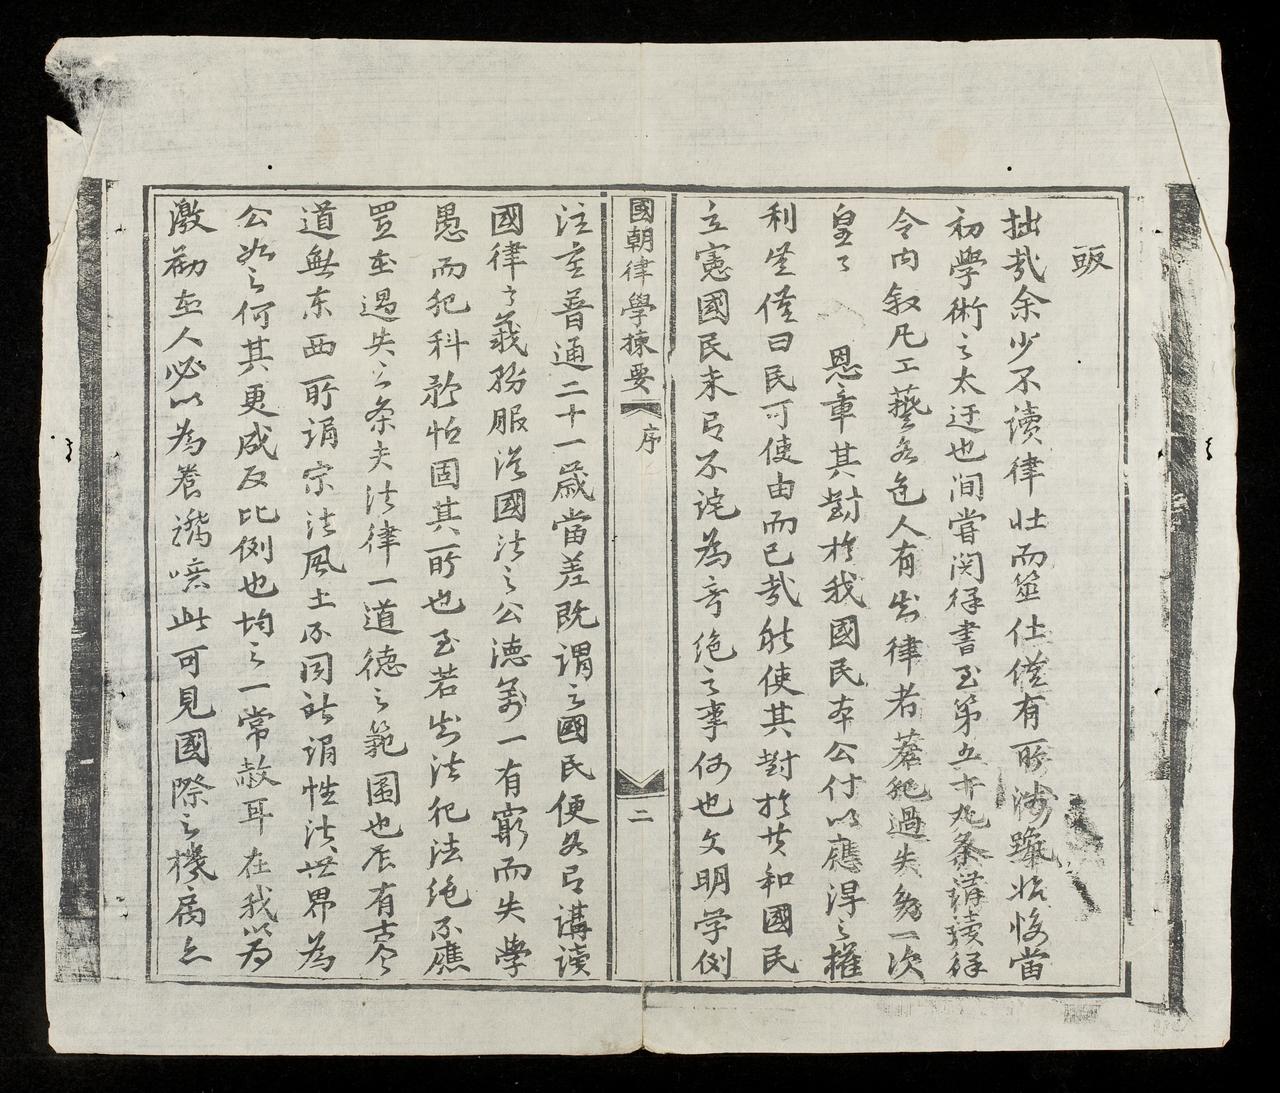 拙哉余少不读律壮而筮仕僅有所涉躐始悔當
初學術之太迂也间嘗阅律書至第五十九条講读律
令内叙凡工藝各色人有出律者蒙犯過失免一次
皇〻恩章其對於我國民夲公付以應淂之權
利豈僅曰民可使由而已哉能使其對於共和國民
立憲國民未曷不詫为奇绝之事何也文明学例
國朝律學揀要
序
二
注意普通二十一歲當差既谓之國民便各曷講读
國律之義務服從國法之公德萬一有窮而失學
愚而犯科矜恤固其所也至若出法犯法绝不應
置在過失之条夫法律一道德之範圍也虽有古今
道無东西所谓宗法風土不同所谓性法世界为
公如之何其更成反比例也均之一常赦耳在我以为
激劝在人必以为養 此可見國際之機局